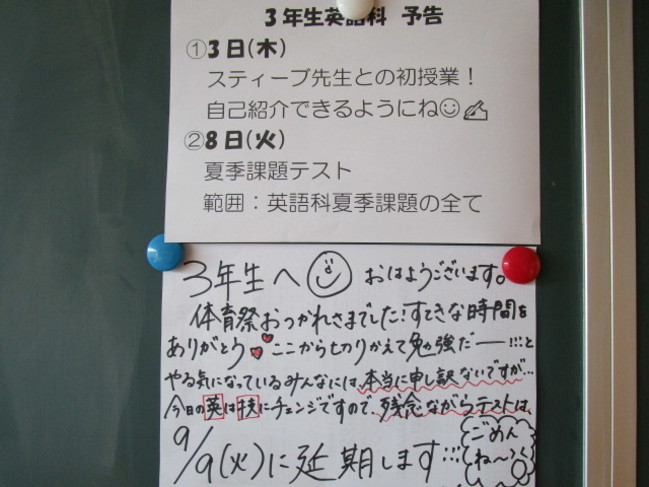 3年生英語科 予告
①3日(木)
スティーブ先生との初授業！
自己紹介できるようにね☺✍
②8日(火)
夏季課題テスト
範囲：英語科夏季課題の全て
3年生へ☺ おはようございます。
体育祭おつかれさまでした！すてきな時間を
ありがとう♥♥ここから切りかえて勉強だー!!!と
やる気になっているみんなには、本当に申し訳ないですが…
今日の英は扶にチェンジですので、残念ながらテストは、
9/9(火)に延期します!!!
ごめん
ね〜